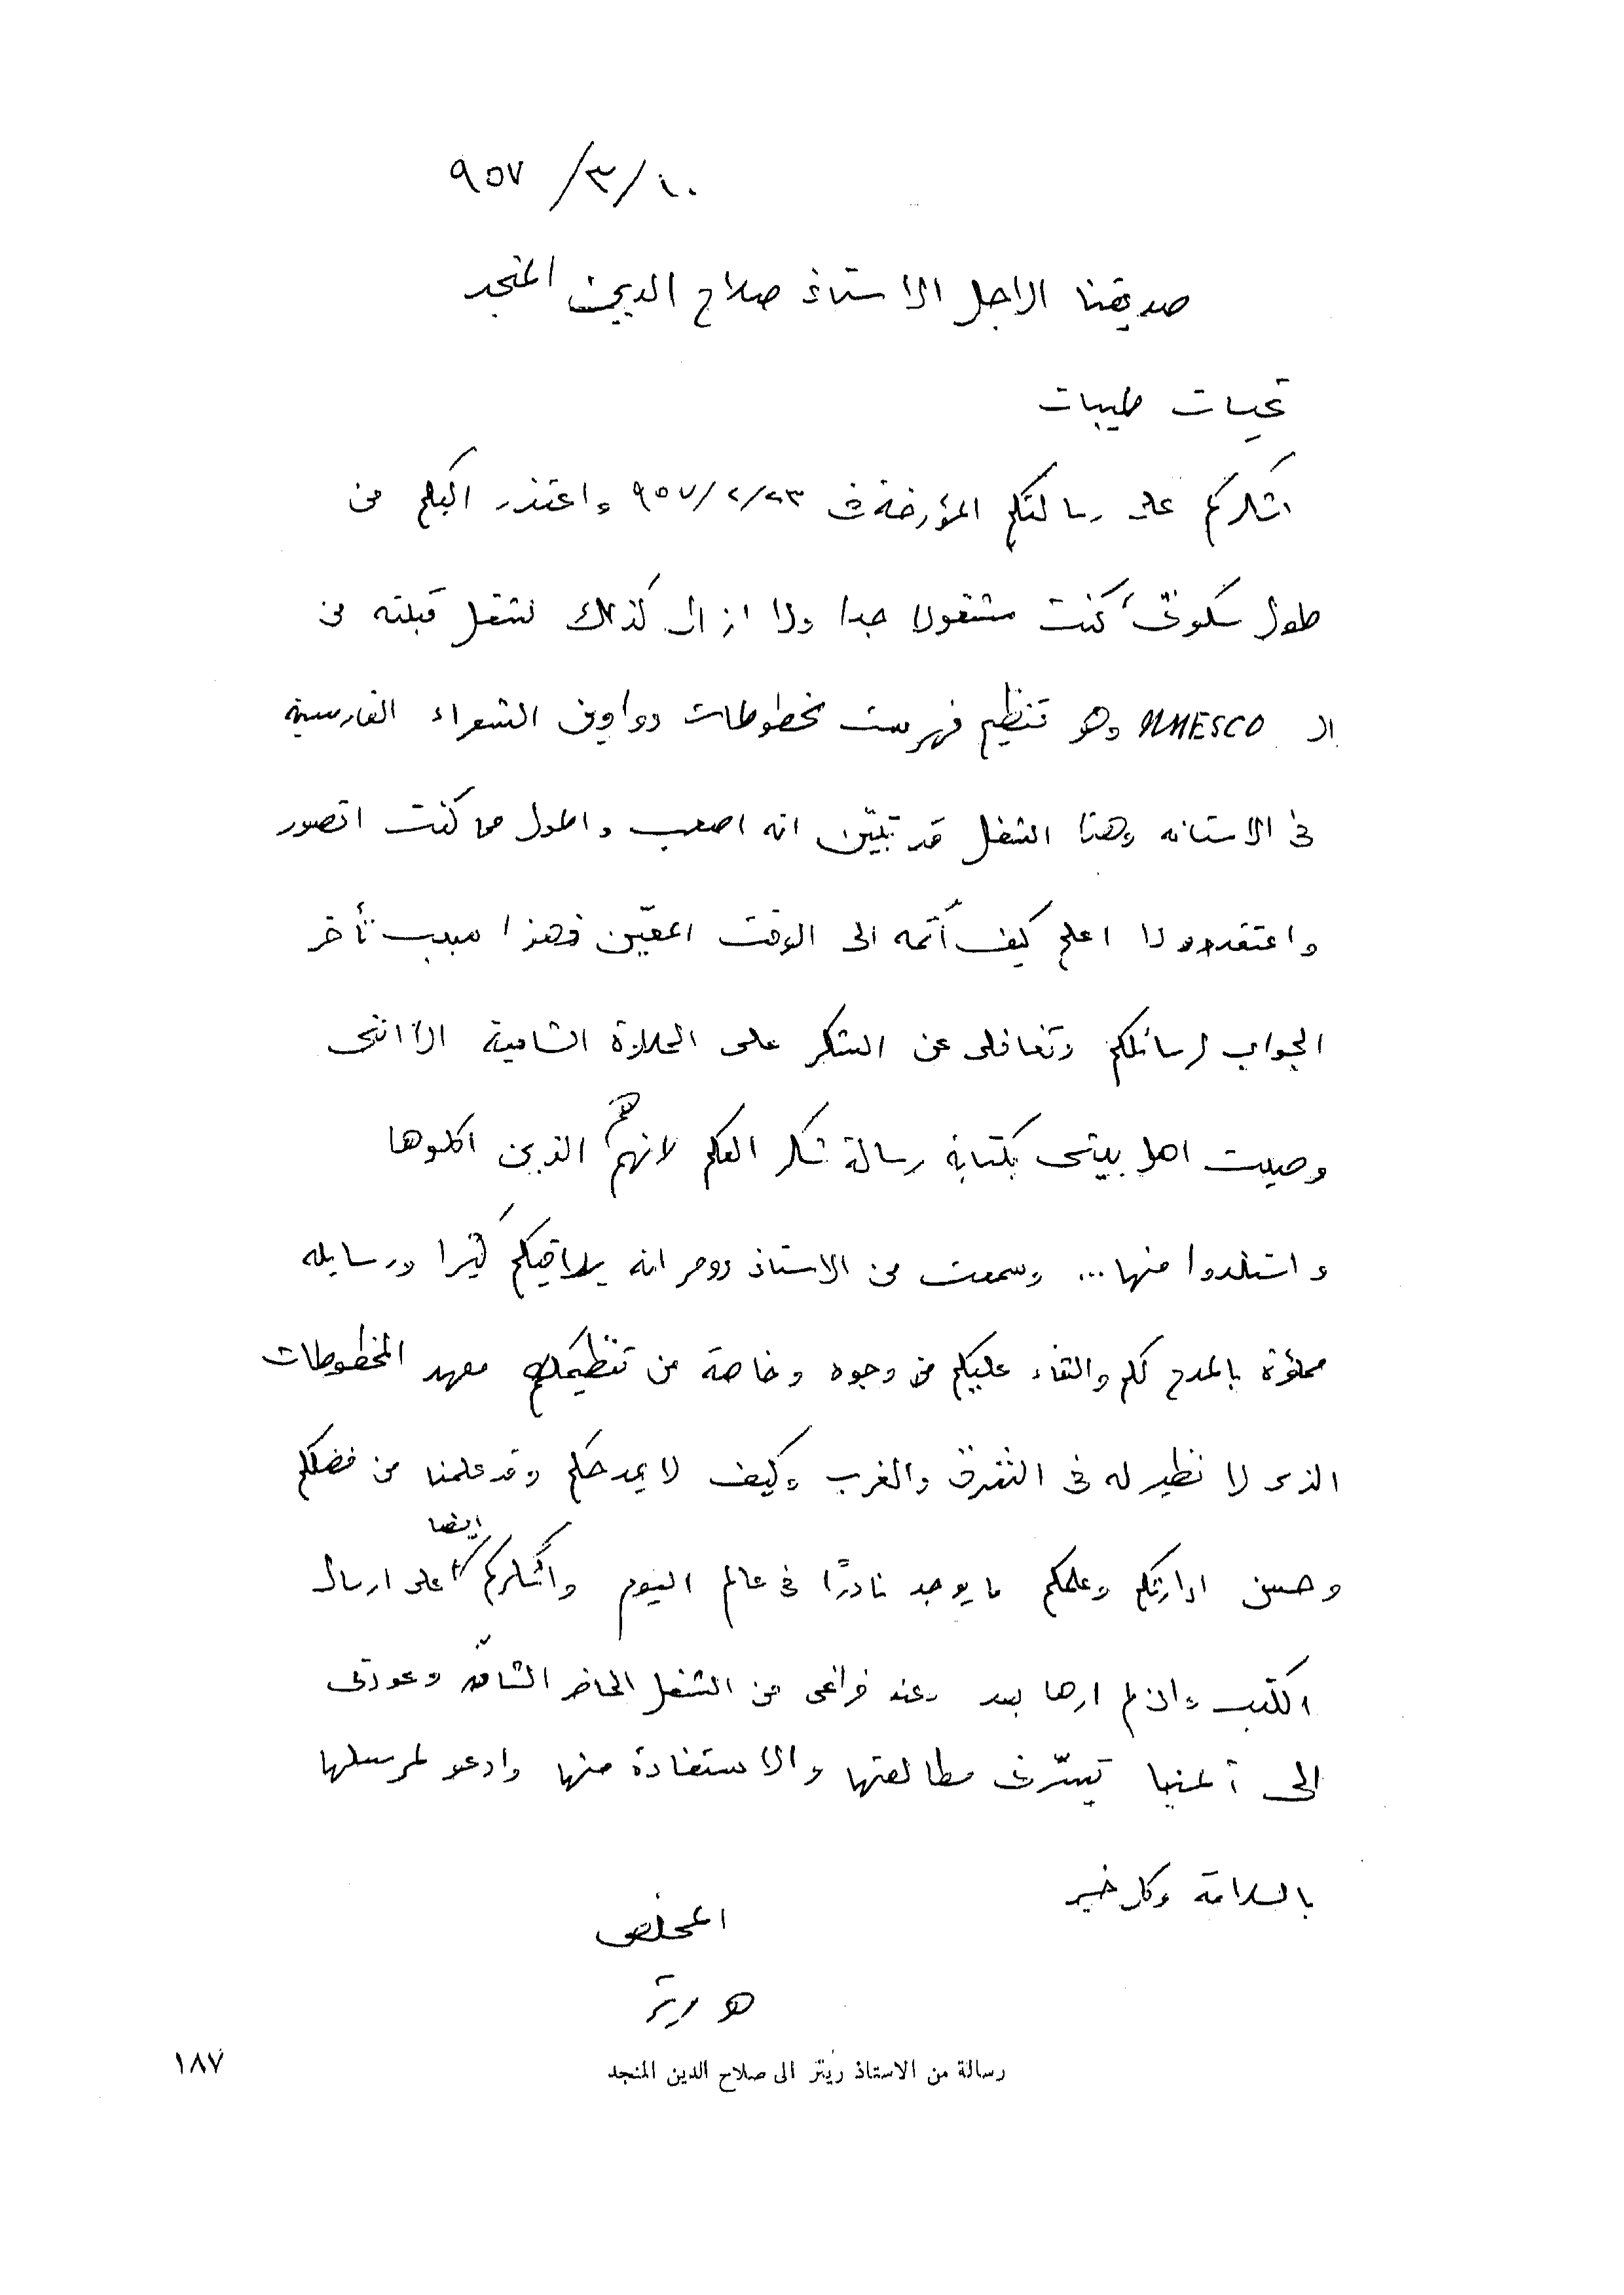 ١٠/٣/ ٩٥٧
صديقنا الاجل الاستاذ صلاح الدين المنجد
تحيات طيبات
اشكركم على رسالتكم المؤرخة فى ٢٣/٢/٩٥٧ واعتذر اليكم من
طول سكوتى، كنت مشغولا جدا ولا ازال كذلك لشغل قبلته من
الـ UNESCO وهو تنظيم فهرست مخطوطات دواوين الشعراء الفارسية
فى الاستانه وهذا الشغل قد تبيّن انه اصعب واطول مما كنت اتصور
واعتقد ولا اعلم كيف أتمه الى الوقت المعيّن فهذا سبب تأخر
الجواب لرسائلكم وتغافلى عن الشكر على الحلاوة الشامية الا اننى
وصيت اهل بيتى بكتابة رسالة شكر الىكم لانهم هم الذين اكلوها
واستلذوا منها... وسمعت من الاستاذ رومر انه يلاقيكم كثيرا ورسايله
مملؤة بالمدح لكم والثناء عليكم من وجوه وخاصة من تنظيمكم معهد المخطوطات
الذى لا نظير له فى الشرق والغرب وكيف لا يمدحكم وقد علمنا من فضلكم
وحسن ادارتكم وعلمكم ما يوجد نادرًا فى عالم اليوم واشكركم ايضا على ارسال
الكتب وان لم ارها بعد وعند فراغى من الشغل الحاضر الشاقّ وعودتى
الى آلمنيا تيسّرنى مطالعتها والاستفادة منها وادعو لمرسلها
بالسلامة وكل خير
المخلص
هـ ريتر
رسالة من الاستاذ ريتّر الى صلاح الدين المنجد
١٨٧